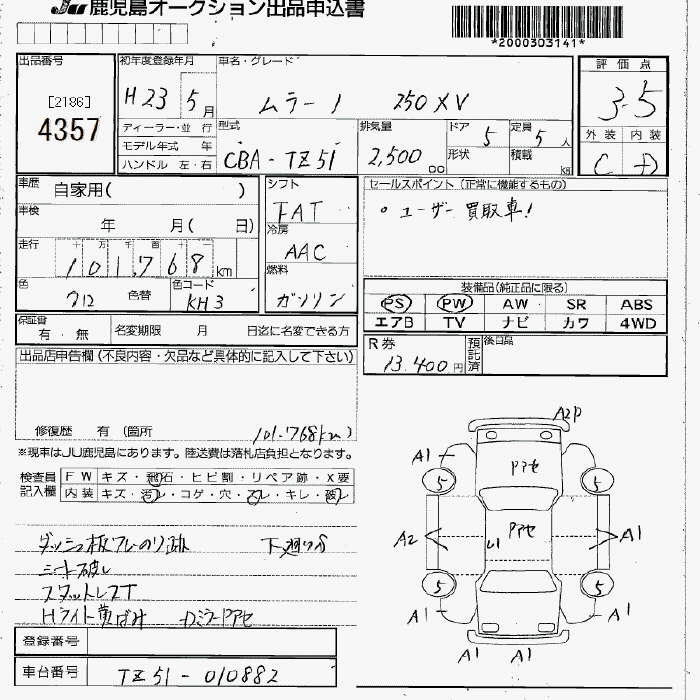 JU鹿児島オークション出品申込書
*2000303141*
出品番号
[2186]
4357
初年度登録年月
H23 5月
車名・グレード
ムラーノ 250XV
評価点
3.5
外装 内装
C D
ディーラー・並行
モデル年式 年
ハンドル 左・右
型式
CBA-TZ51
排気量
2,500 cc
ドア 5
形状
定員 5人
積載 kg
車歴 自家用( )
車検
年 月( 日)
走行
十 万 千 百 十
101,768 km
色
クロ 色替
色コード
KH3
シフト
FAT
冷房
AAC
燃料
ガソリン
セールスポイント(正常に機能するもの)
○ユーザー買取車!
装備品(純正品に限る)
PS PW AW SR ABS
エアB TV ナビ カワ 4WD
保証書
有・無
名変期限 月 日迄に名変できる方
R券
13,400円
預託済
後日品
出品店申告欄(不良内容・欠品など具体的に記入して下さい)
修復歴 有(箇所 101,768km)
※現車はJU鹿児島にあります。陸送費は落札店負担となります。
検査員記入欄
FW キズ・飛石・ヒビ割・リペア跡・X要
内装 キズ・汚レ・コゲ・穴・スレ・キレ・破レ
ダッシュ板 のり跡 下廻りサ
シート破レ
スタットレスT
Hライト黄ばみ
登録番号
車台番号
TZ51-010882
A2P
A1
アアセ
5
5
A2
アアセ
A1
5
5
A1
A1
A1
A1